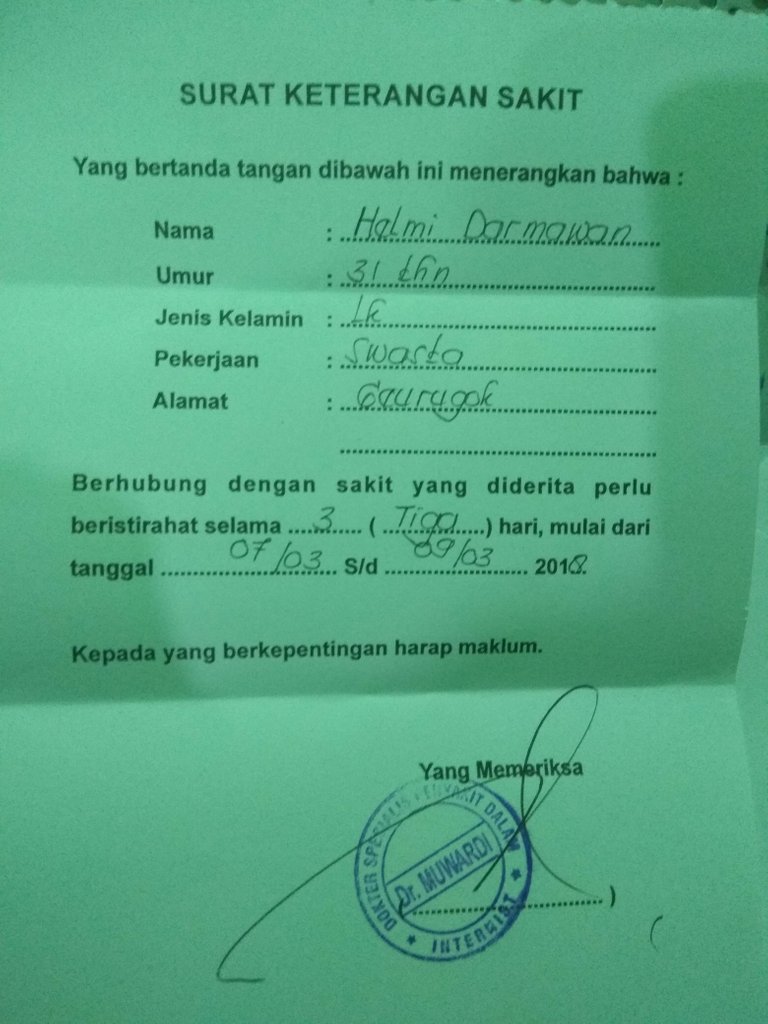 SURAT KETERANGAN SAKIT
Yang bertanda tangan dibawah ini menerangkan bahwa :
Nama : Helmi Darmawan
Umur : 31 thn
Jenis Kelamin : Lk
Pekerjaan : Swasta
Alamat :
Berhubung dengan sakit yang diderita perlu
beristirahat selama 3 ( Tiga ) hari, mulai dari
tanggal 07/03 S/d 09/03 2018
Kepada yang berkepentingan harap maklum.
Yang Memeriksa
DOKTER SPESIALIS PENYAKIT DALAM
Dr. MUWARDI
INTERNIST
( )